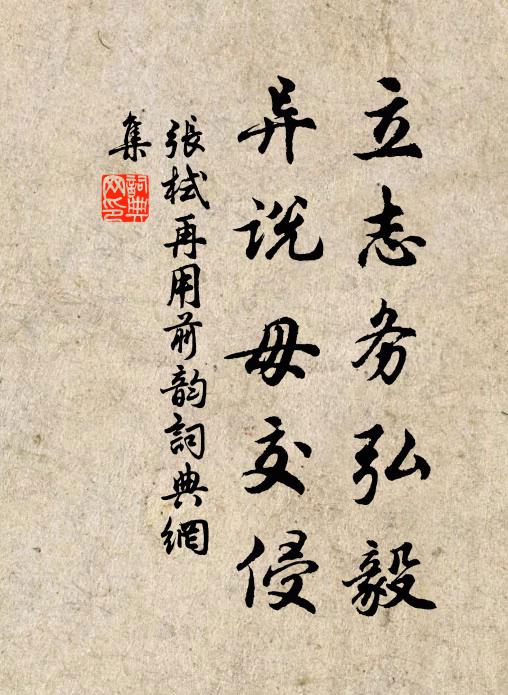 立志务弘毅
异说毋交侵
張栻再用前韵詞典網
集
詞典网印